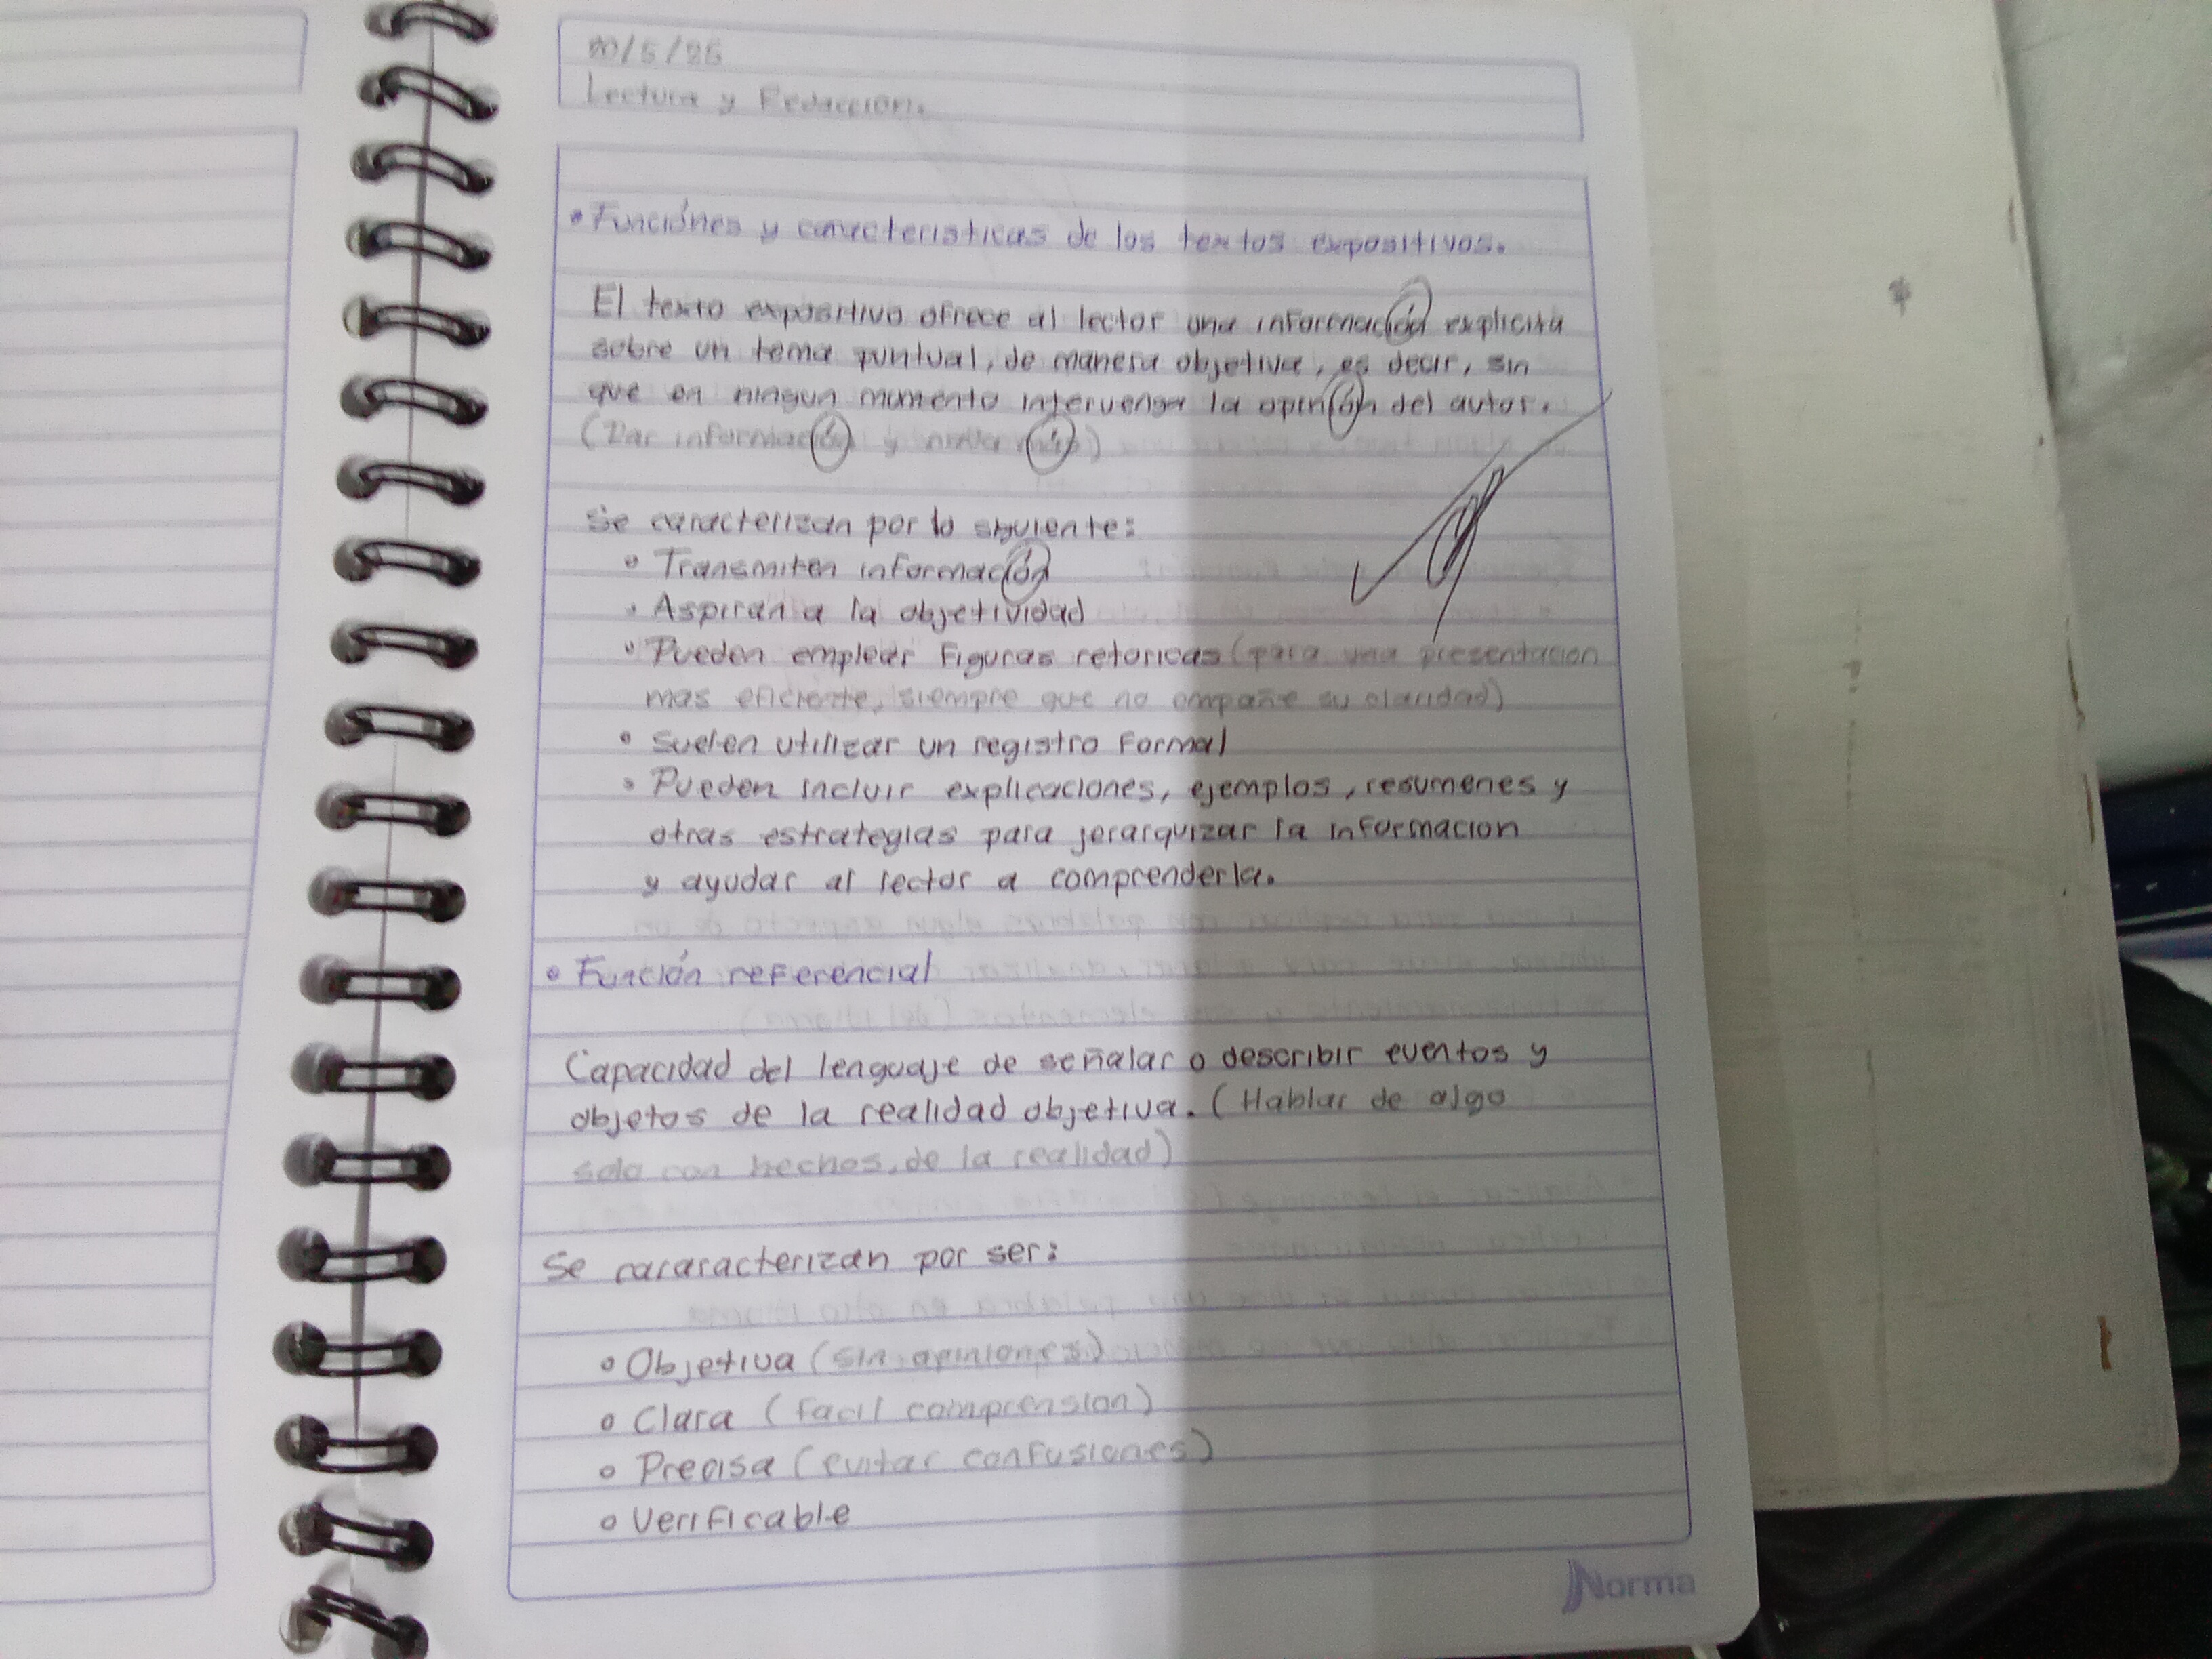 20/5/25
Lectura y Redacción.
• Funciónes y caracteristicas de los textos expositivos.
El texto expositivo ofrece al lector una información explicita
sobre un tema puntual, de manera objetiva, es decir, sin
que en ningun momento intervenga la opinión del autor.
(Dar información y nada más)
Se caracterizan por lo siguiente:
• Transmiten información
• Aspiran a la objetividad
• Pueden emplear figuras retoricas (para una presentacion
mas eficiente, siempre que no empañe su claridad)
• Suelen utilizar un registro formal
• Pueden incluir explicaciones, ejemplos, resumenes y
otras estrategias para jerarquizar la informacion
y ayudar al lector a comprenderla.
• Función referencial
Capacidad del lenguaje de señalar o describir eventos y
objetos de la realidad objetiva. (Hablar de algo
solo con hechos, de la realidad)
Se cararacterizan por ser:
• Objetiva (sin opiniones)
• Clara (facil comprension)
• Precisa (evitar confusiones)
• Verificable
Norma